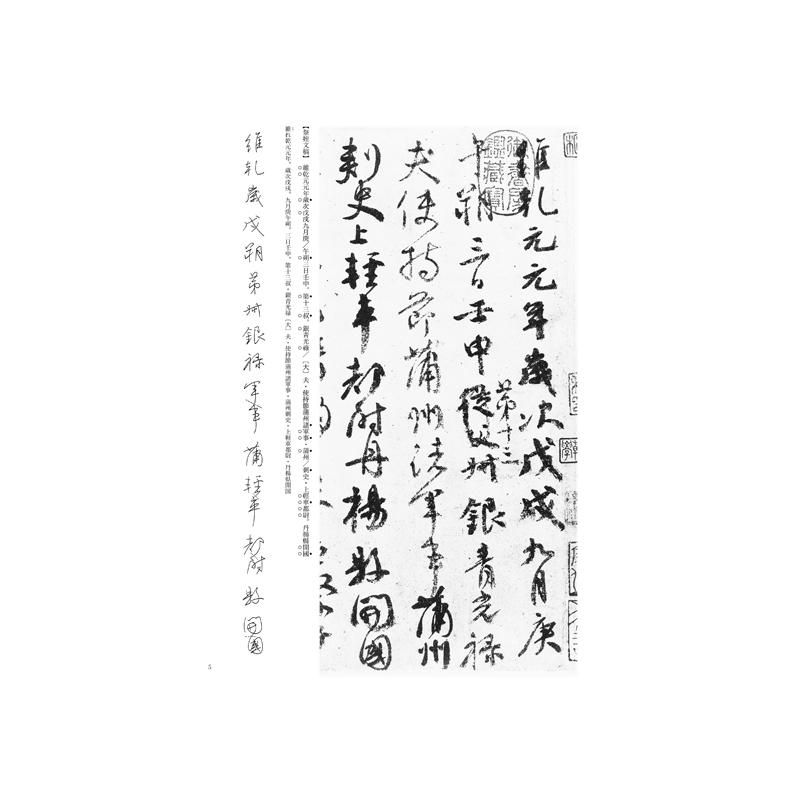 御書房鑑藏寶
維乾元元年歲次戊戌九月庚
午朔三日壬申第十三從父叔銀青光祿
夫使持節蒲州諸軍事蒲州
刺史上輕車都尉丹楊縣開國
【祭姪文稿】維乾元元年歲次戊戌九月庚／午朔三日壬申。第十三叔。銀青光祿／〔大〕夫・使持節蒲州諸軍事・蒲州／刺史・上輕車都尉。丹楊縣開國
維れ乾元元年、歳次戊戌、九月庚午朔、三日壬申、第十三叔・銀青光禄〔大〕夫・使持節蒲州諸軍事・蒲州刺史・上軽車都尉・丹楊県開国
維乾歲戊朔第叔銀祿軍事蒲輕車都尉縣開國
5